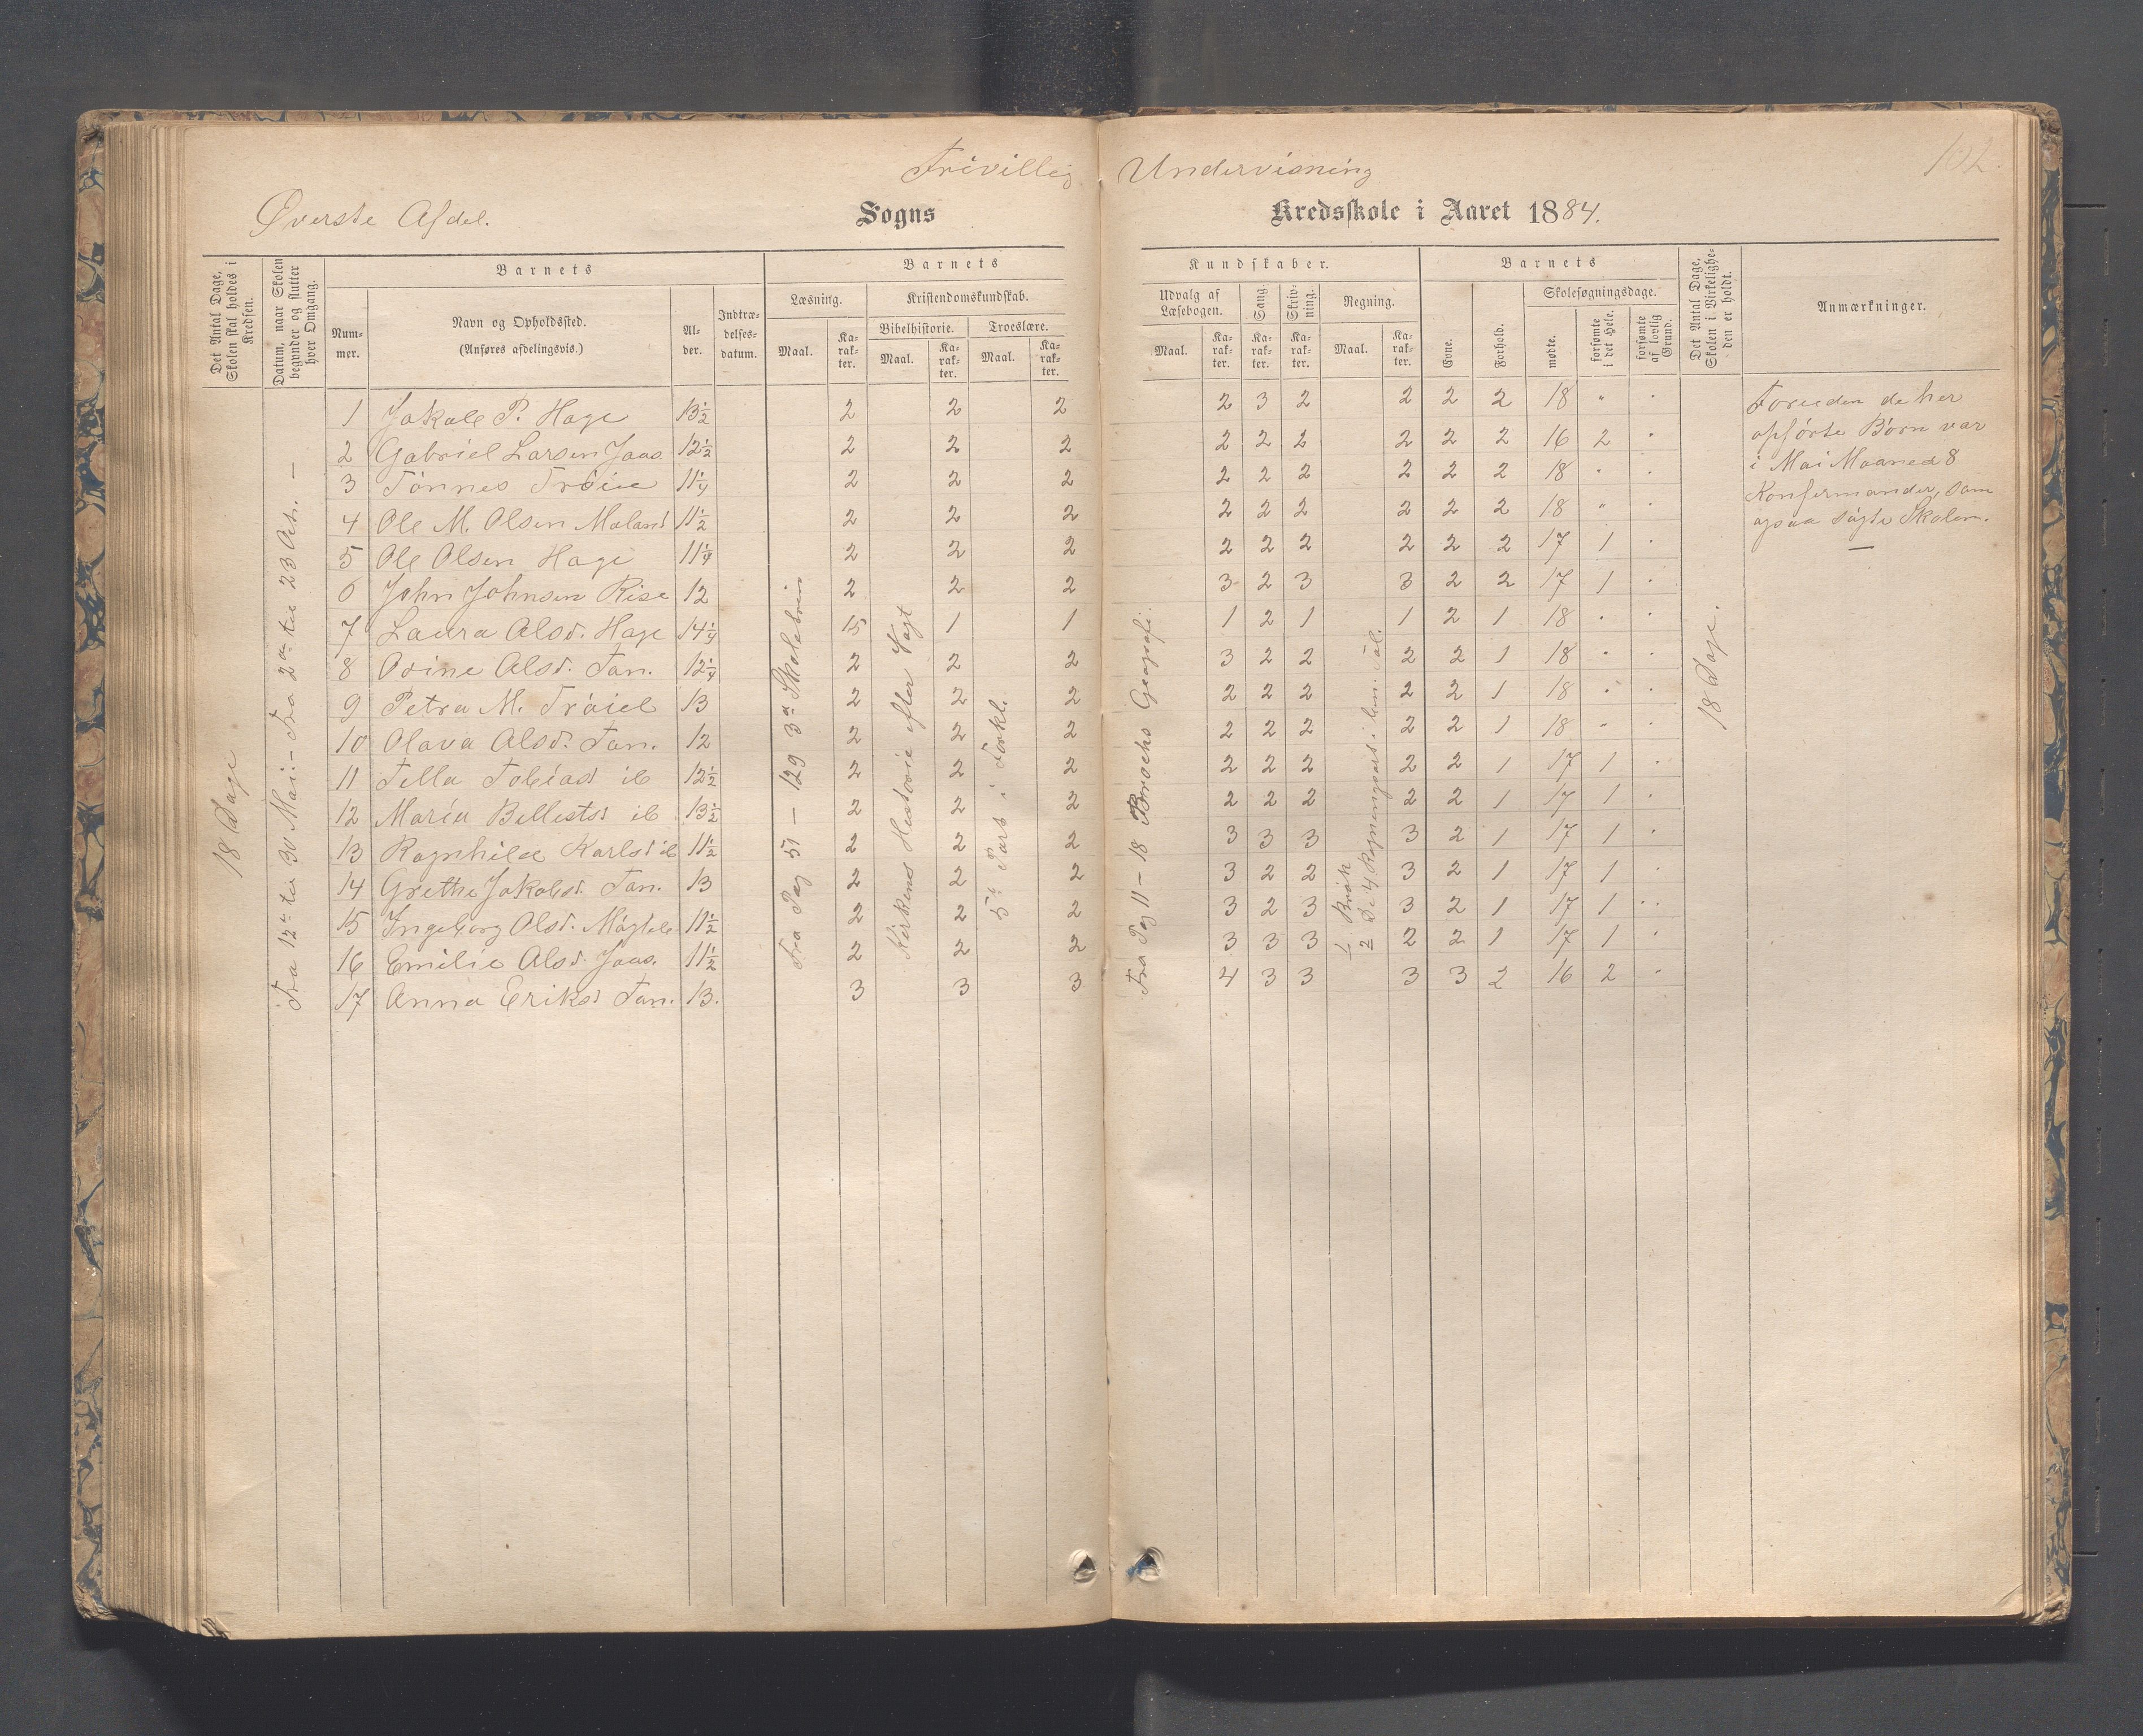 Frivillig Undervisning
102.
Øverste Afdel.
Sogns Kredsskole i Aaret 1884.
Det Antal Dage, Skolen skal holdes i Kredsen.
Datum, naar Skolen begynder og slutter hver Omgang.
Barnets
Barnets
Kundskaber.
Barnets
Det Antal Dage, Skolen i Virkeligheden er holdt.
Anmærkninger.
Nummer.
Navn og Opholdssted.
(Anføres afdelingsvis.)
Alder.
Indtrædelsesdatum.
Læsning.
Kristendomskundskab.
Bibelhistorie.
Troeslære.
Maal.
Karakter.
Maal.
Karakter.
Maal.
Karakter.
Udvalg af Læsebogen.
Sang.
Skrivning.
Regning.
Maal.
Karakter.
Karakter.
Karakter.
Maal.
Karakter.
Evne.
Forhold.
Skolesøgningsdage.
mødte.
forsømte i det Hele.
forsømte af lovlig Grund.
18 Dage
Fra 12te til 30 Mai. – Fra 2den til 23 Octr. –
Fra Pag 51 – 129 3die Skoletrin
Kirkens Historie efter Vogt
5te Part i Forkl.
Fra Pag 11 – 18 Brochs Geografi.
½ Brøk
De 4 Regningsart i hen. Tal.
18 Dage.
1 Jakob P. Hage 13½ 2 2 2 2 3 2 2 2 2 18 " .
2 Gabriel Larsen Jaas 12½ 2 2 2 2 2 2 2 2 2 16 2 .
3 Tønnes Trøiel 11¼ 2 2 2 2 2 2 2 2 2 18 . .
4 Ole M. Olsen Moland 11½ 2 2 2 2 2 2 2 2 2 18 " .
5 Ole Olsen Hage 11¼ 2 2 2 2 2 2 2 2 2 17 1 .
6 John Johnsen Rise 12 2 2 2 3 2 3 3 2 2 17 1 .
7 Laura Olsd. Hage 14¼ 15 1 1 1 2 1 1 2 1 18 . .
8 Orine Olsd. Tan. 12¼ 2 2 2 3 2 2 2 2 1 18 . .
9 Petra M. Trøiel 13 2 2 2 2 2 2 2 2 1 18 . .
10 Olava Olsd. Tan. 12 2 2 2 2 2 2 2 2 1 18 . .
11 Tella Tobiasd ib 12½ 2 2 2 2 2 2 2 2 1 17 1 .
12 Maria Bellestsd ib 13½ 2 2 2 2 2 2 2 2 1 17 1 .
13 Ragnhild Karlsd ib 11½ 2 2 2 3 3 3 3 2 1 17 1 .
14 Grethe Jakobsd. Tan. 13 2 2 2 3 2 2 3 2 1 17 1 .
15 Ingeborg Olsd. Møgleb 11½ 2 2 2 3 2 3 3 2 1 17 1 . .
16 Emilie Olsd. Jaas. 11½ 2 2 2 3 3 3 2 2 1 17 1 .
17 Anna Eriksd Tan. 13. 3 3 3 4 3 3 3 3 2 16 2 .
Foruden de her
opførte Børn var
i Mai Maaned 8
Konfirmander, som
ogsaa søgte Skolen.
—